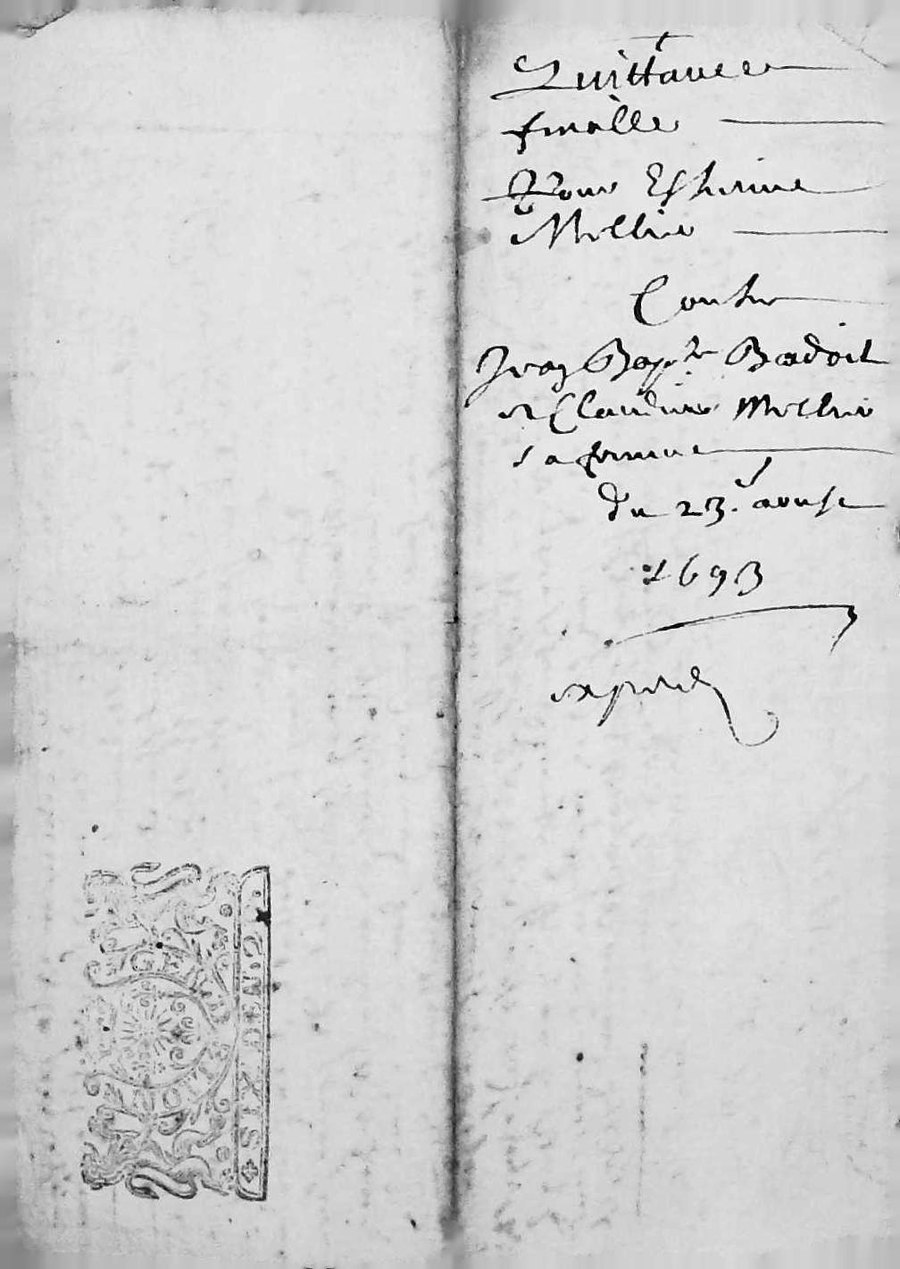 Quittance
finalle
Pour Estienne
Mellier
Contre
Jean Bap.te Badoil
et Claudine Mellier
sa femme
du 23.e aoust
1693
expedié
GENER
NOTTE
SIX DEN. 2.